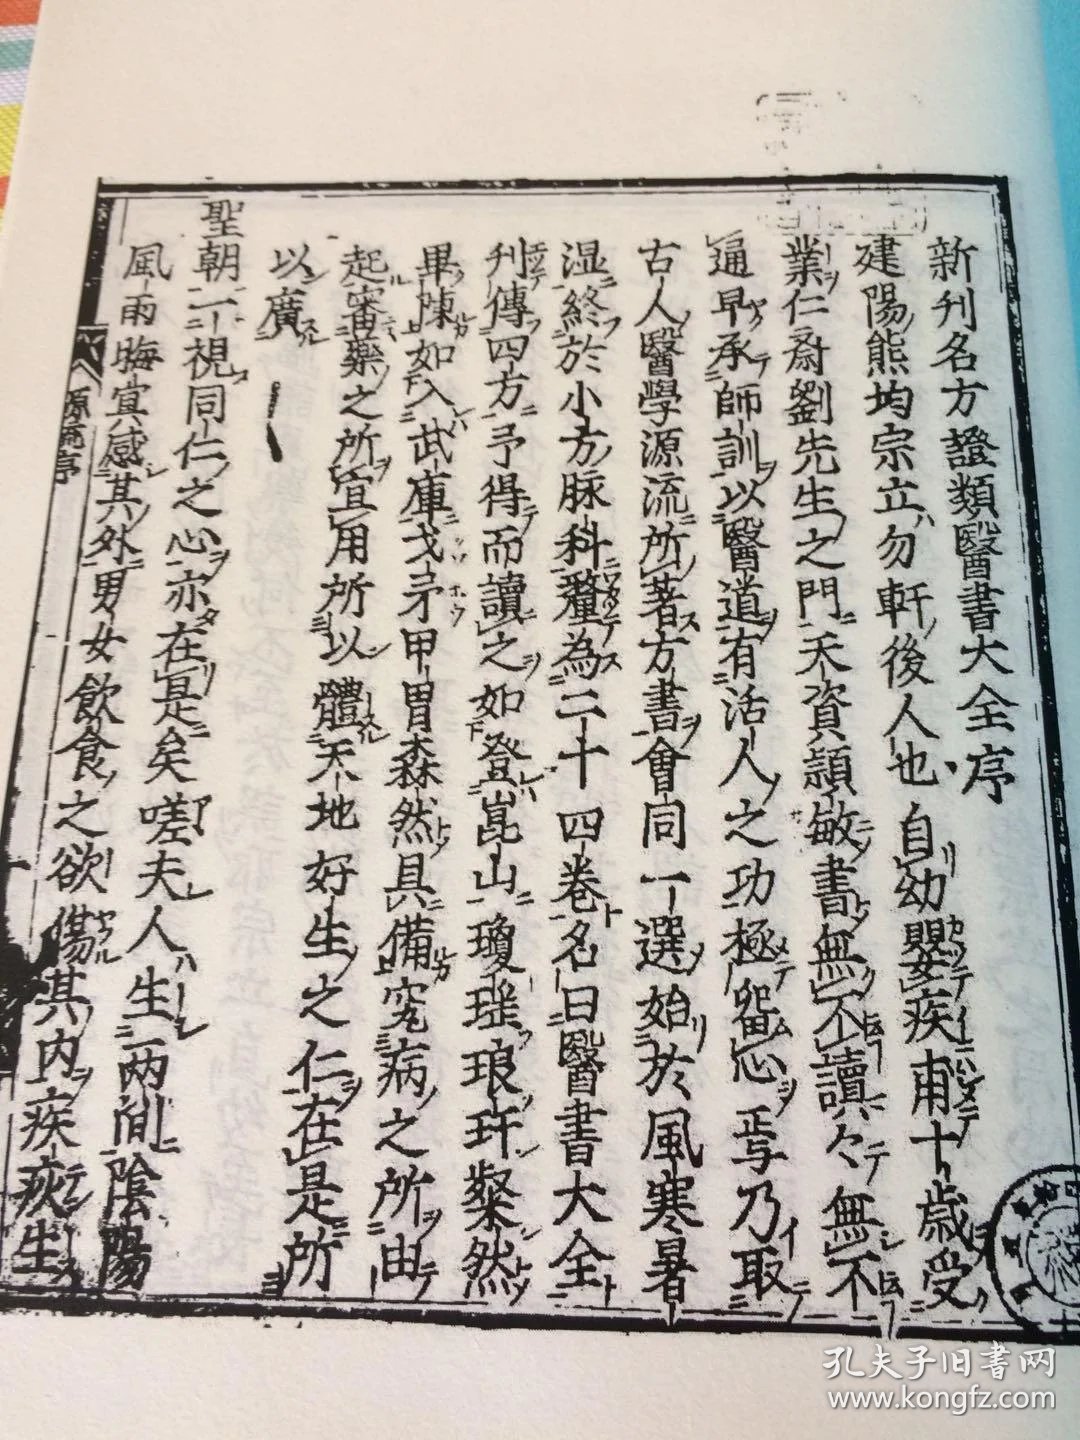 新刊名方證類醫書大全序
建陽熊均宗立勿軒後人也自幼嬰疾甫十歲受
業仁齋劉先生之門天資頴敏書無不讀々無不
通早承師訓以醫道有活人之功極留心焉乃取
古人醫學源流所著方書會同一選始於風寒暑
湿終於小方脉科釐為二十四卷名曰醫書大全
刊傳四方予得而讀之如登崑山瓊瑤琅玕粲然
畢陳如入武庫戈矛甲胄森然具備究病之所由
起審藥之所宜用所以體天地好生之仁在是所
以廣
聖朝一視同仁之心亦在是矣嗟夫人生両間陰陽
風雨晦冥感其外男女飲食之欲傷其内疾疢生
源流序
孔夫子旧書网
www.kongfz.com